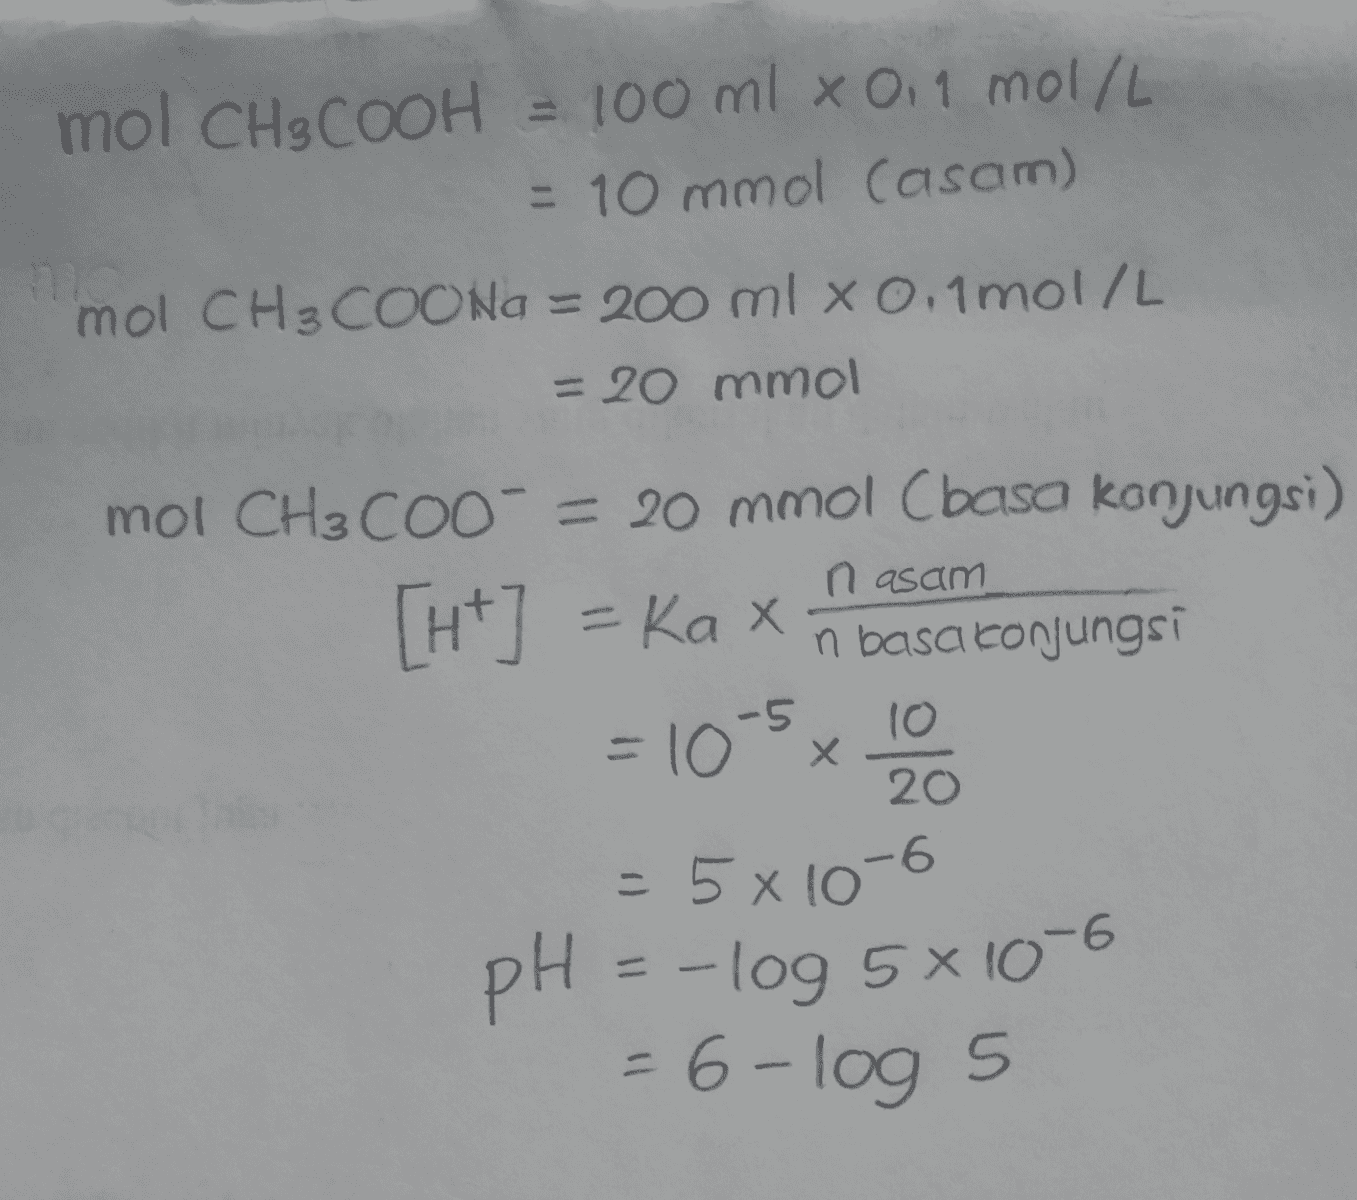 mol CH₃COOH = 100 ml x 0,1 mol/L
= 10 mmol (asam)
mol CH₃COONa = 200 ml x 0,1 mol/L
= 20 mmol
mol CH₃COO⁻ = 20 mmol (basa konjungsi)
[H⁺] = Ka x n asam / n basa konjungsi
= 10⁻⁵ x 10/20
= 5 x 10⁻⁶
pH = - log 5 x 10⁻⁶
= 6 - log 5